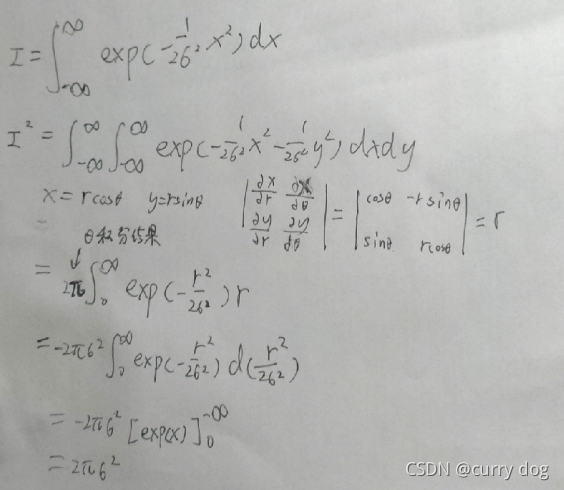 I = ∫_{-∞}^{∞} exp(-\frac{1}{2σ²}x²)dx
I² = ∫_{-∞}^{∞} ∫_{-∞}^{∞} exp(-\frac{1}{2σ²}x² - \frac{1}{2σ²}y²) dxdy
x = rcosθ y=rsinθ |\frac{∂x}{∂r} \frac{∂x}{∂θ} ; \frac{∂y}{∂r} \frac{∂y}{∂θ}| = |cosθ -r sinθ ; sinθ rcosθ| = r
θ积分结果
↓
= 2π ∫_{0}^{∞} exp(-\frac{r²}{2σ²}) r
= -2πσ² ∫_{0}^{∞} exp(-\frac{r²}{2σ²}) d(\frac{r²}{2σ²})
= -2πσ² [exp(x)]_{0}^{-∞}
= 2πσ²
CSDN @curry dog